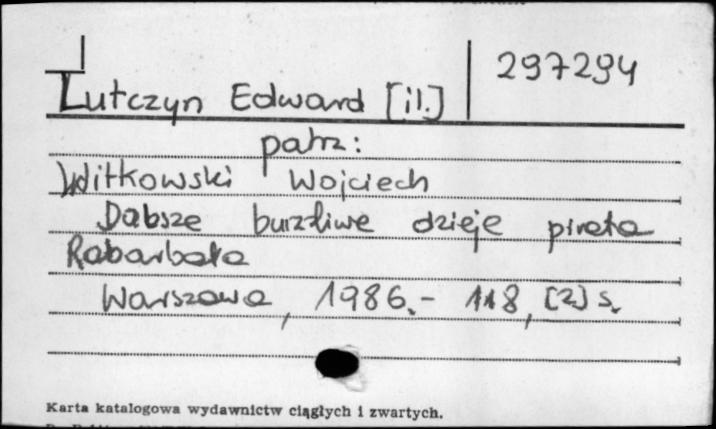 Lutczyn Edward [il.]
297294
patrz:
Witkowski Wojciech
Dabsze burzliwe dzieje pirata
Rabarbara
Warszawa, 1986.- 118, [2] s.
Karta katalogowa wydawnictw ciągłych i zwartych.